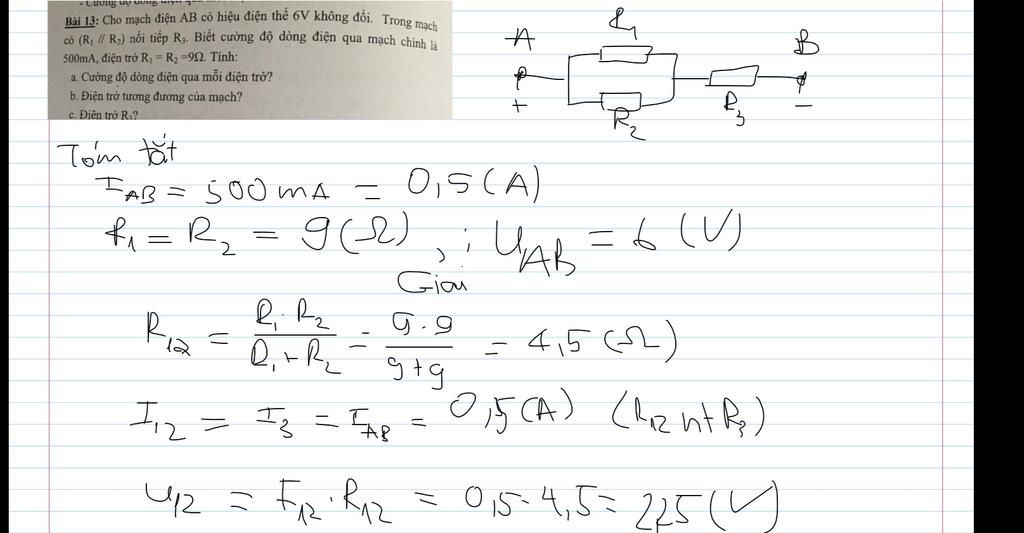 - Cường độ dòng điện qua
Bài 13: Cho mạch điện AB có hiệu điện thế 6V không đổi. Trong mạch
có (R₁ // R₂) nối tiếp R₃. Biết cường độ dòng điện qua mạch chính là
500mA, điện trở R₁ = R₂ =9Ω. Tính:
a. Cường độ dòng điện qua mỗi điện trở?
b. Điện trở tương đương của mạch?
c. Điện trở R₃?
A
R₁
B
+
R₂
R₃
-
Tóm tắt
I_AB = 500mA = 0,5(A)
R₁ = R₂ = 9(Ω), ; U_AB = 6 (V)
Giải
R₁₂ = R₁.R₂/R₁+R₂ = 9.9/9+9 = 4,5 (Ω)
I₁₂ = I₃ = I_AB = 0,5(A) (R₁₂ nt R₃)
U₁₂ = I₁₂.R₁₂ = 0,5.4,5 = 2,25 (V)